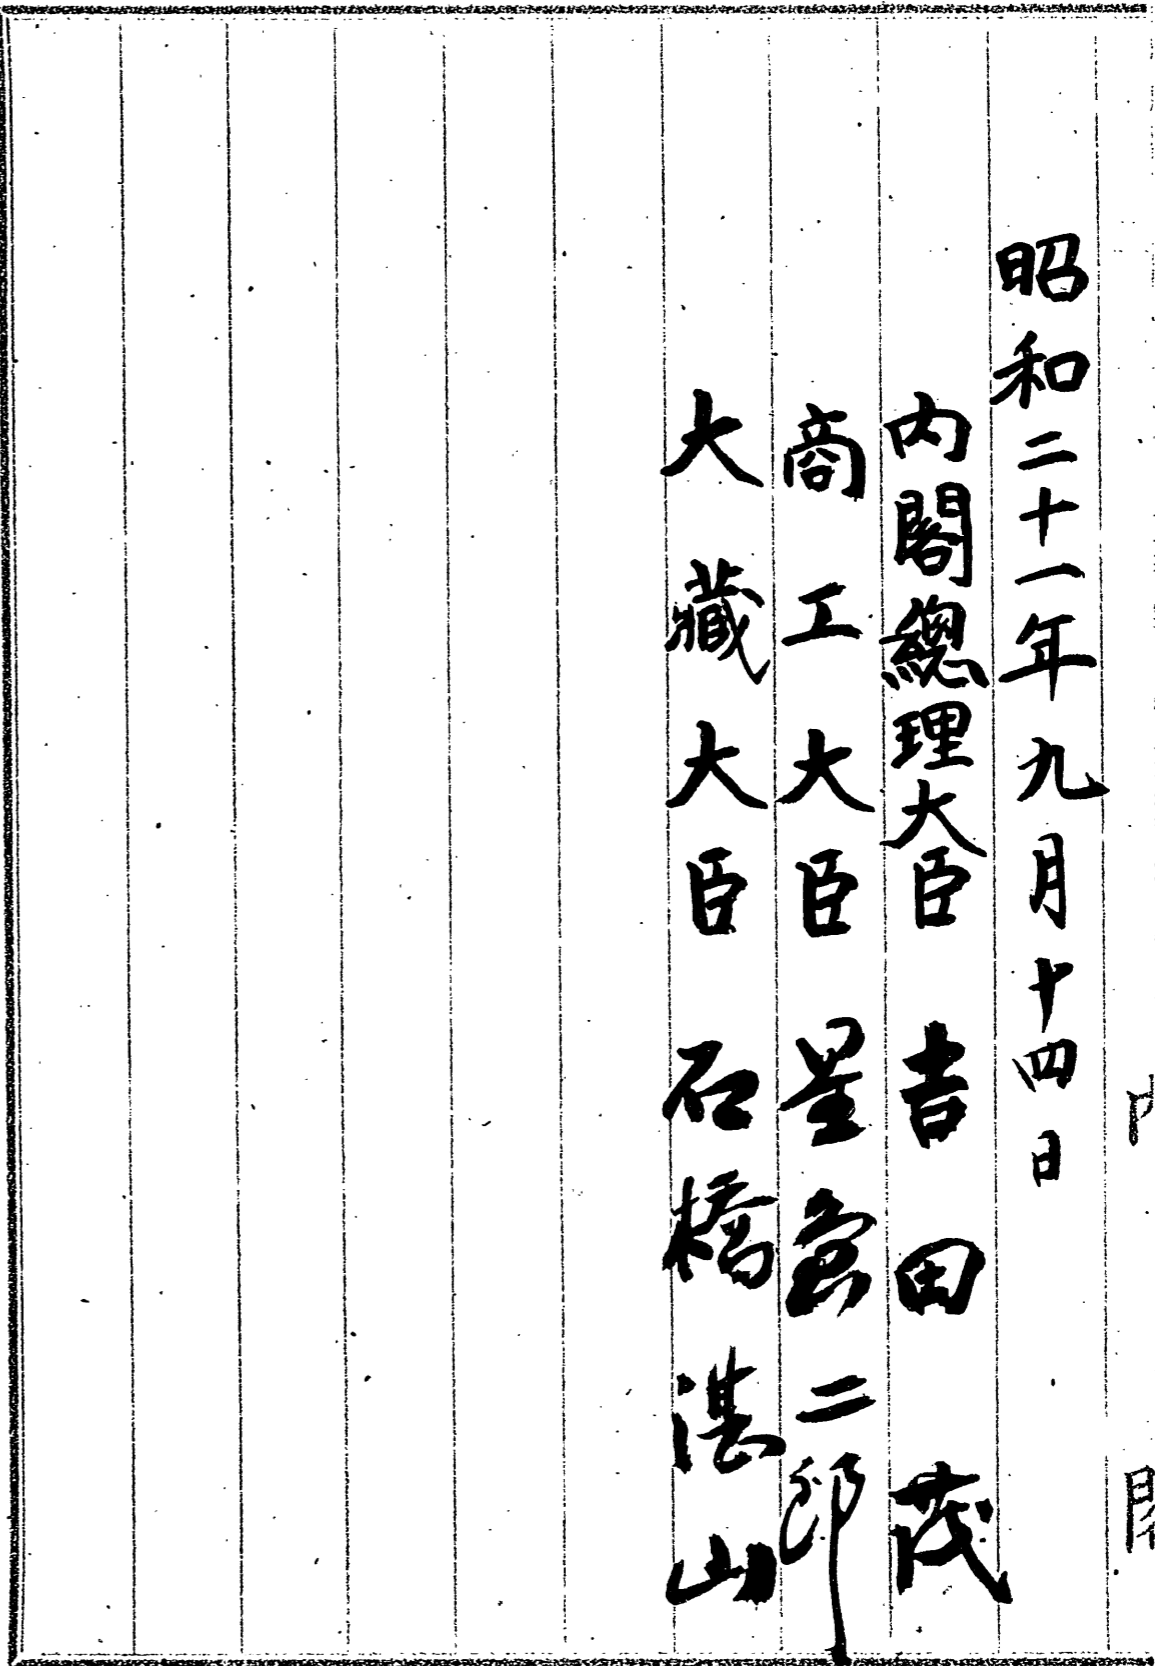 昭和二十一年九月十四日
內閣總理大臣 吉田茂
商工大臣 星島二郎
大藏大臣 石橋湛山